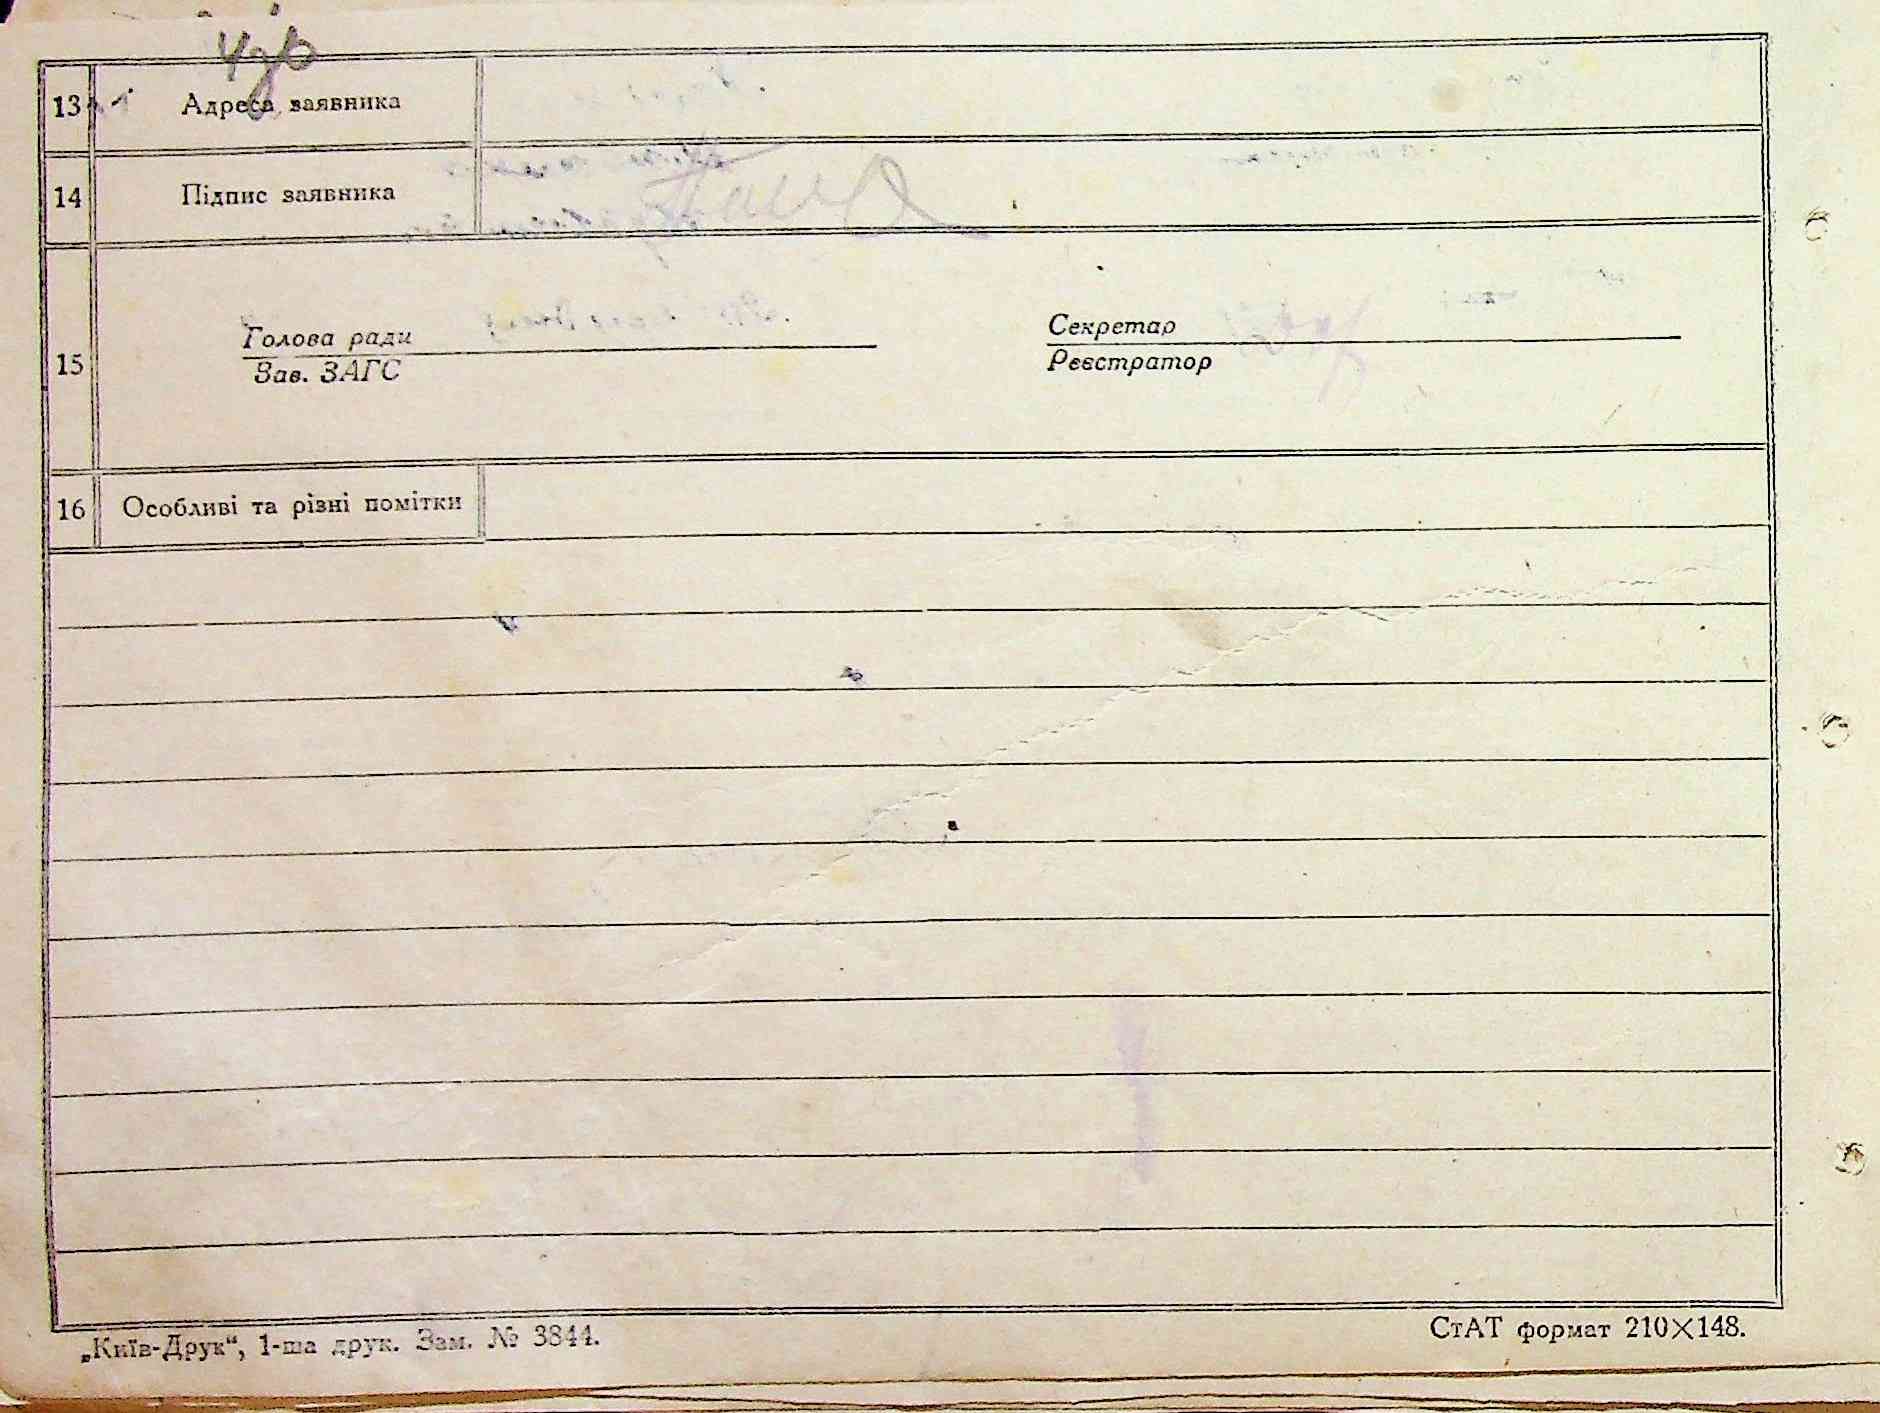 13 Адреса заявника
14 Підпис заявника
15 Голова ради Секретар
Зав. ЗАГС Реєстратор
16 Особливі та різні помітки
„Київ-Друк“, 1-ша друк. Зам. № 3844. СтАТ формат 210×148.